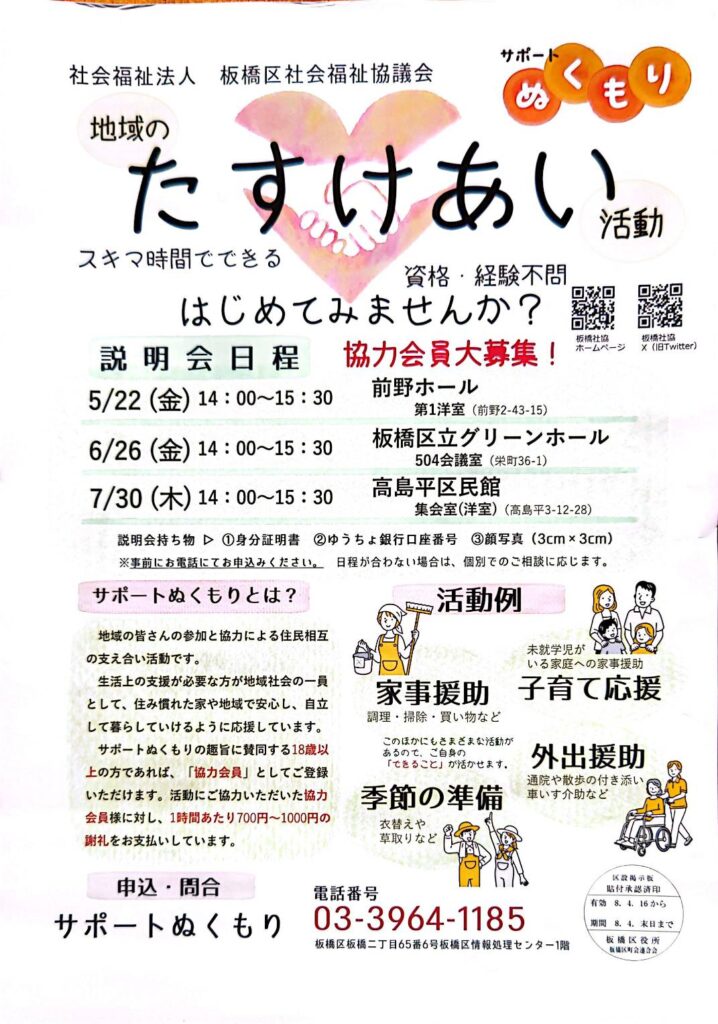 社会福祉法人　板橋区社会福祉協議会
サポート
ぬくもり
地域の
たすけあい
活動
スキマ時間でできる
資格・経験不問
はじめてみませんか？
板橋社協
ホームページ
板橋社協
X（旧Twitter）
説明会日程
協力会員大募集！
5/22 (金) 14：00～15：30
前野ホール
第1洋室（前野2-43-15）
6/26 (金) 14：00～15：30
板橋区立グリーンホール
504会議室（栄町36-1）
7/30 (木) 14：00～15：30
高島平区民館
集会室(洋室)（高島平3-12-28）
説明会持ち物 ▷ ①身分証明書　②ゆうちょ銀行口座番号　③顔写真（3cm×3cm）
※事前にお電話にてお申込みください。　日程が合わない場合は、個別でのご相談に応じます。
サポートぬくもりとは？
地域の皆さんの参加と協力による住民相互
の支え合い活動です。
生活上の支援が必要な方が地域社会の一員
として、住み慣れた家や地域で安心し、自立
して暮らしていけるように応援しています。
サポートぬくもりの趣旨に賛同する18歳以
上の方であれば、「協力会員」としてご登録
いただけます。活動にご協力いただいた協力
会員様に対し、1時間あたり700円～1000円の
謝礼をお支払いしています。
活動例
家事援助
調理・掃除・買い物など
未就学児が
いる家庭への家事援助
子育て応援
このほかにもさまざまな活動が
あるので、ご自身の
「できること」が活かせます。
外出援助
通院や散歩の付き添い
車いす介助など
季節の準備
衣替えや
草取りなど
申込・問合
サポートぬくもり
電話番号
03-3964-1185
板橋区板橋二丁目65番6号板橋区情報処理センター1階
区設掲示板
貼付承認済印
有効　8. 4. 16から
期間　8. 4. 末日まで
板橋区役所
板橋区町会連合会